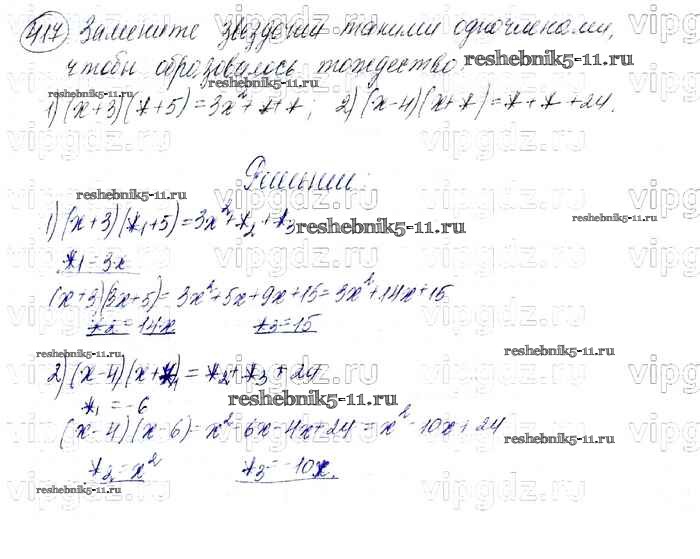 417 Замените звездочки такими одночленами,
чтобы образовалось тождество:
1) (x+3)(*+5)=3x²+*+*; 2) (x-4)(x+*)=*+*+24.
Решение:
1) (x+3)(*₁+5)=3x²+*₂+*₃
*₁=3x
(x+3)(3x+5)=3x²+5x+9x+15=3x²+14x+15
*₂=14x *₃=15
2) (x-4)(x+*₁)=*₂+*₃+24
*₁=-6
(x-4)(x-6)=x²-6x-4x+24=x²-10x+24
*₂=x² *₃=-10x.
reshebnik5-11.ru
vipgdz.ru